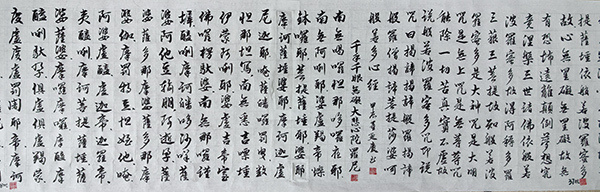 提薩埵依般若波羅蜜多
故心無罣礙無罣礙故無
有恐怖遠離顛倒夢想究
竟涅槃三世諸佛依般若
波羅蜜多故得阿耨多羅
三藐三菩提故知般若波
羅蜜多是大神咒是大明
咒是無上咒是無等等咒
能除一切苦真實不虛故
說般若波羅蜜多咒即說
咒曰揭諦揭諦般羅揭諦
般羅僧揭諦菩提莎婆呵
般若多心經 甲辰
千手千眼無礙大悲心陀羅尼
南無喝囉怛那哆囉夜耶
南無阿唎耶婆盧羯帝爍
缽囉耶菩提薩埵婆耶
摩訶薩埵婆耶摩訶迦盧
尼迦耶唵薩皤囉罰曳數
怛那怛寫南無悉吉嘌埵
伊蒙阿唎耶婆盧吉帝室
佛囉楞馱婆南無那囉謹
墀醯唎摩訶皤哆沙咩薩
婆阿他豆輸朋阿逝孕薩
婆薩哆那摩婆薩哆那摩
婆伽摩罰特豆怛姪他唵
阿婆盧醯盧迦帝迦羅帝
夷醯唎摩訶菩提薩埵薩
婆薩婆摩囉摩囉摩醯摩
醯唎馱孕俱盧俱盧羯蒙
度盧度盧罰闍耶帝摩訶